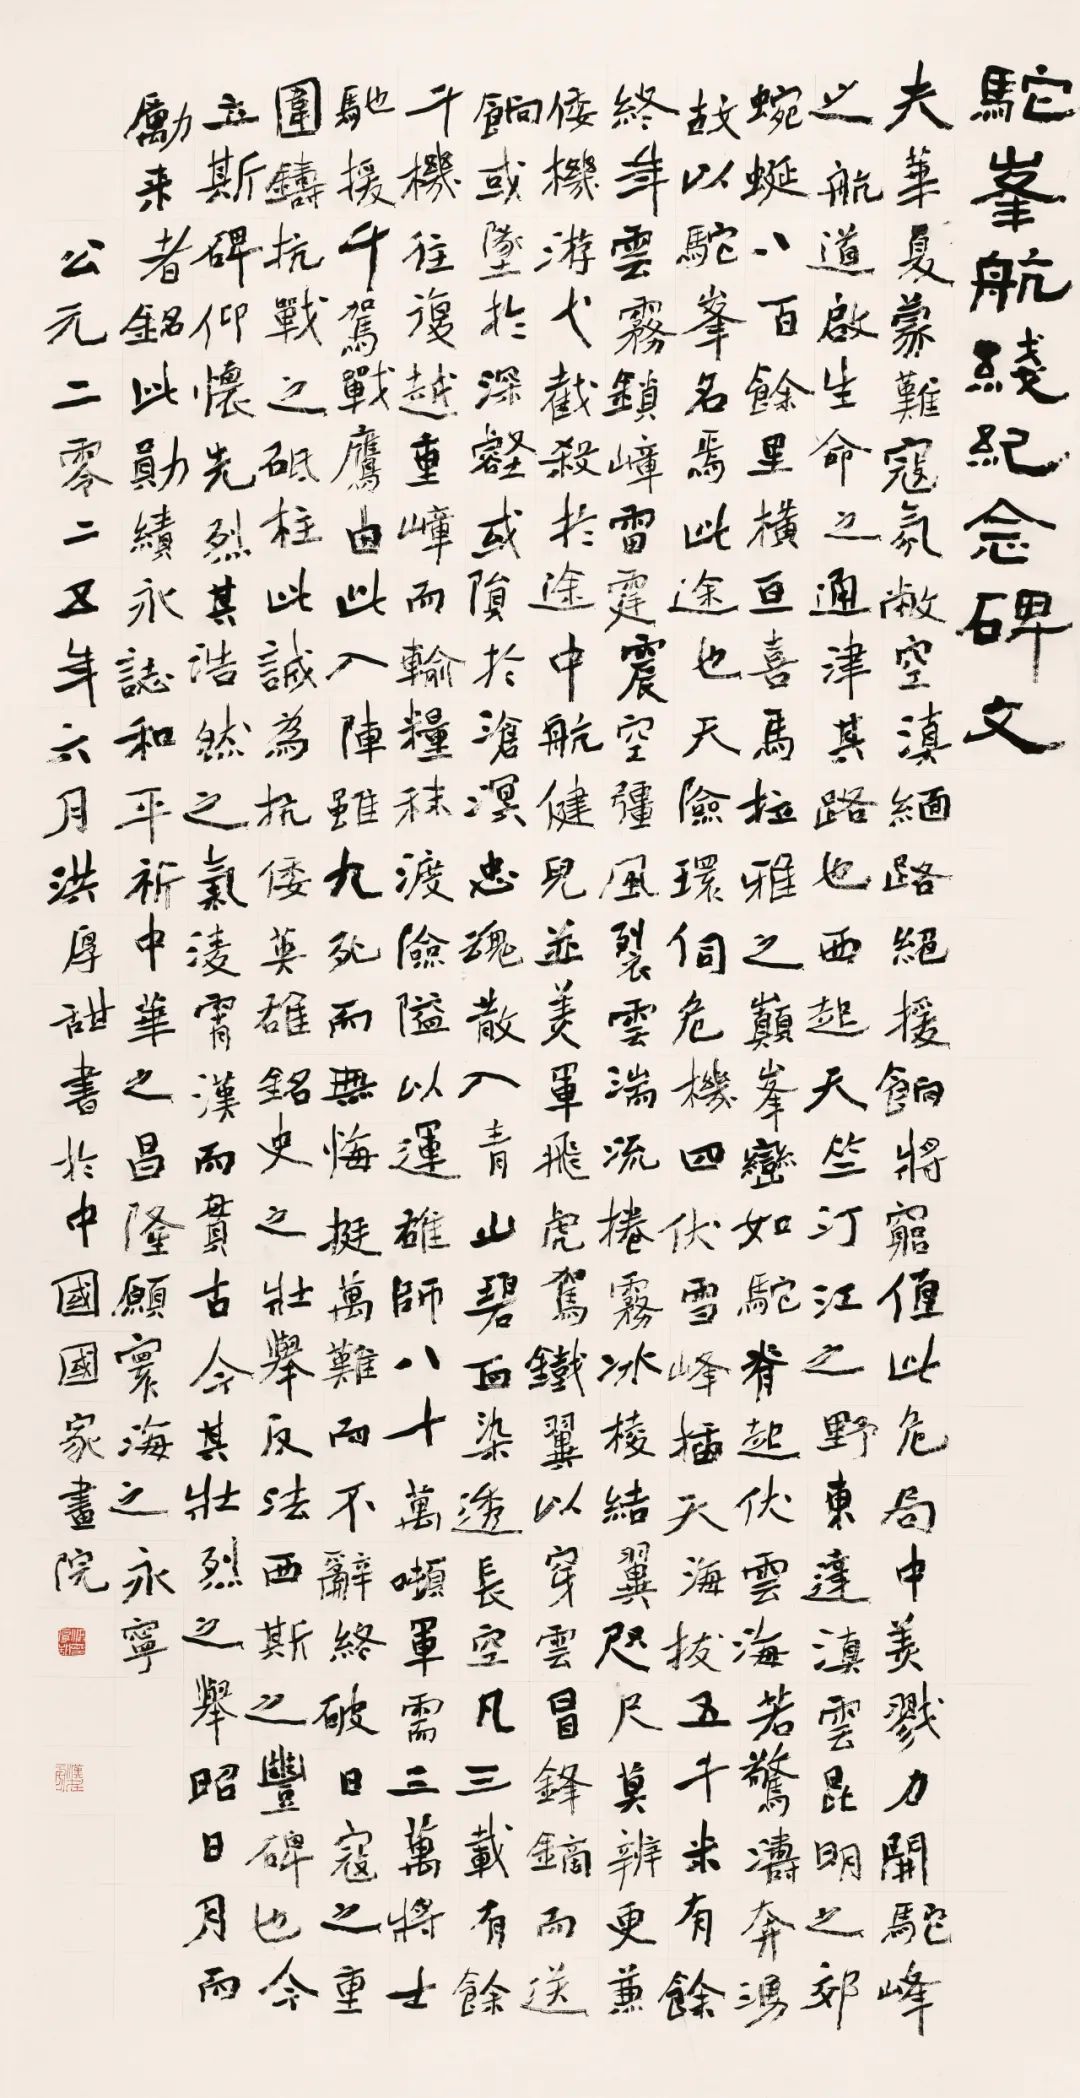 駝峯航綫紀念碑文
夫華夏蒙難寇氛敝空滇緬路絕援餉將窮值此危局中美戮力開駝峰
之航道啟生命之通津其路也西起天竺汀江之野東達滇雲昆明之郊
蜿蜒八百餘里橫亘喜馬拉雅之巔峯巒如駝脊起伏雲海若驚濤奔湧
故以駝峯名焉此途也天險環伺危機四伏雪峰插天海拔五千米有餘
終年雲霧鎖嶂雷霆震空彊風裂雲湍流捲霧冰棱結翼咫尺莫辨更兼
倭機游弋截殺於途中航健兒並美軍飛虎駕鐵翼以穿雲冒鋒鏑而送
餉或墜於深壑或隕於滄溟忠魂散入青山碧血染透長空凡三載有餘
千機往復越重嶂而輸糧秣渡險隘以運雄師八十萬噸軍需三萬將士
馳援千駕戰鷹由此入陣雖九死而無悔挺萬難而不辭終破日寇之重
圍鑄抗戰之砥柱此誠為抗倭英雄銘史之壯舉反法西斯之豐碑也今
立斯碑仰懷先烈其浩然之氣淩霄漢而貫古今其壯烈之舉昭日月而
勵来者銘此勛績永誌和平祈中華之昌隆願寰海之永寧
公元二零二五年六月洪厚甜書於中國國家畫院